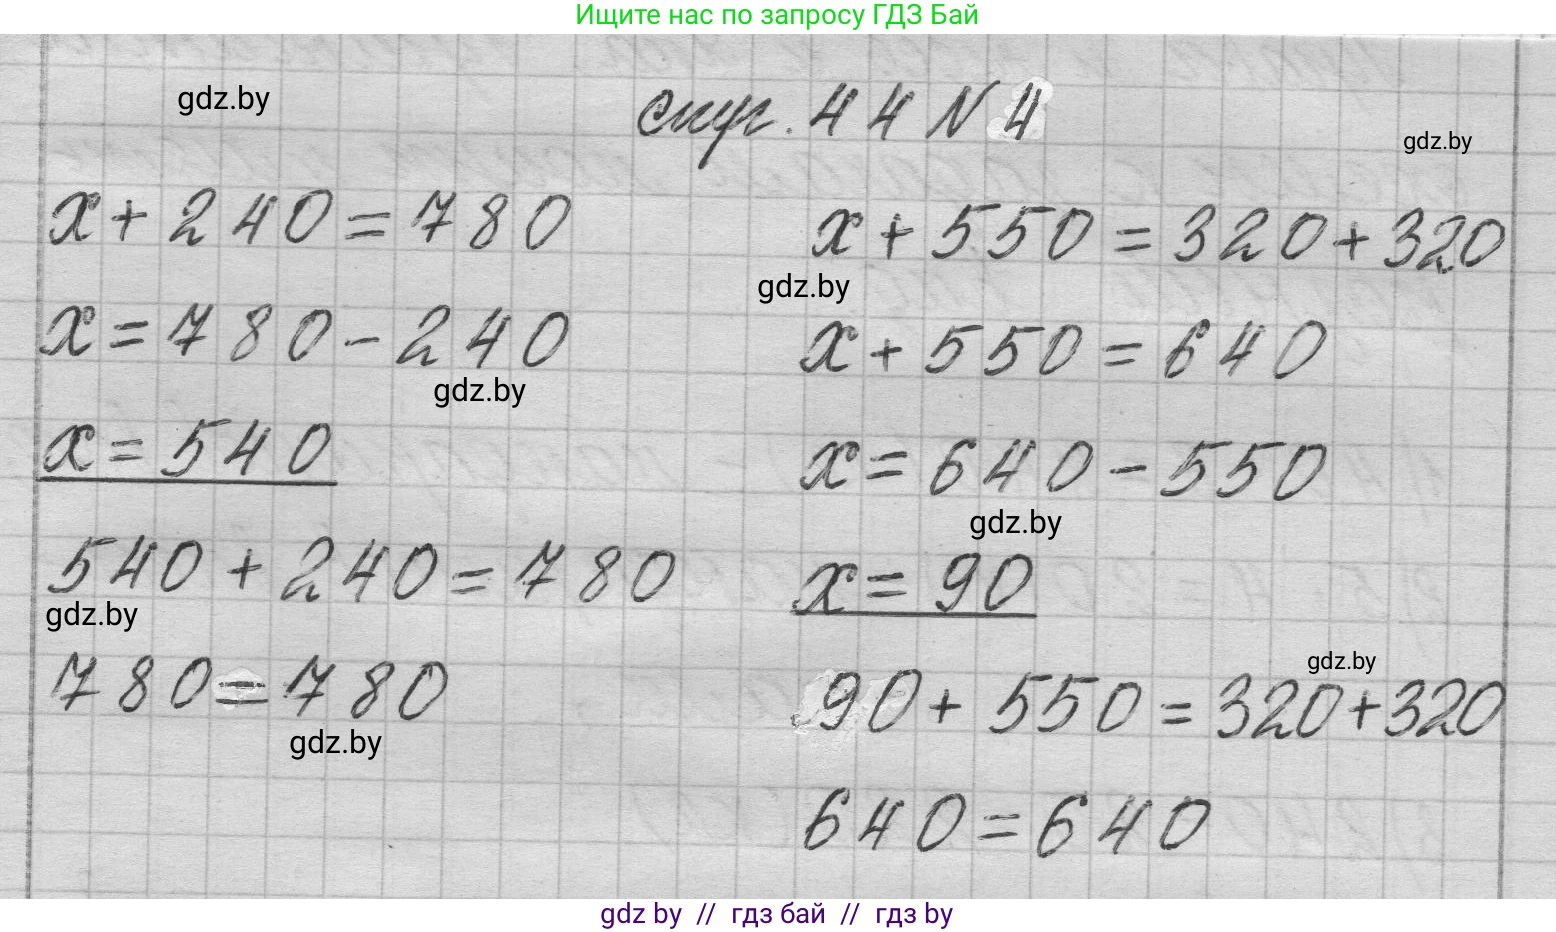 Ищите нас по запросу ГДЗ Бай
gdz.by
стр. 44 N 4
gdz.by
x + 240 = 780
x = 780 - 240
gdz.by
x = 540
540 + 240 = 780
gdz.by
780 = 780
gdz.by
x + 550 = 320 + 320
gdz.by
x + 550 = 640
x = 640 - 550
gdz.by
x = 90
gdz.by
90 + 550 = 320 + 320
640 = 640
gdz by // гдз бай // гдз by